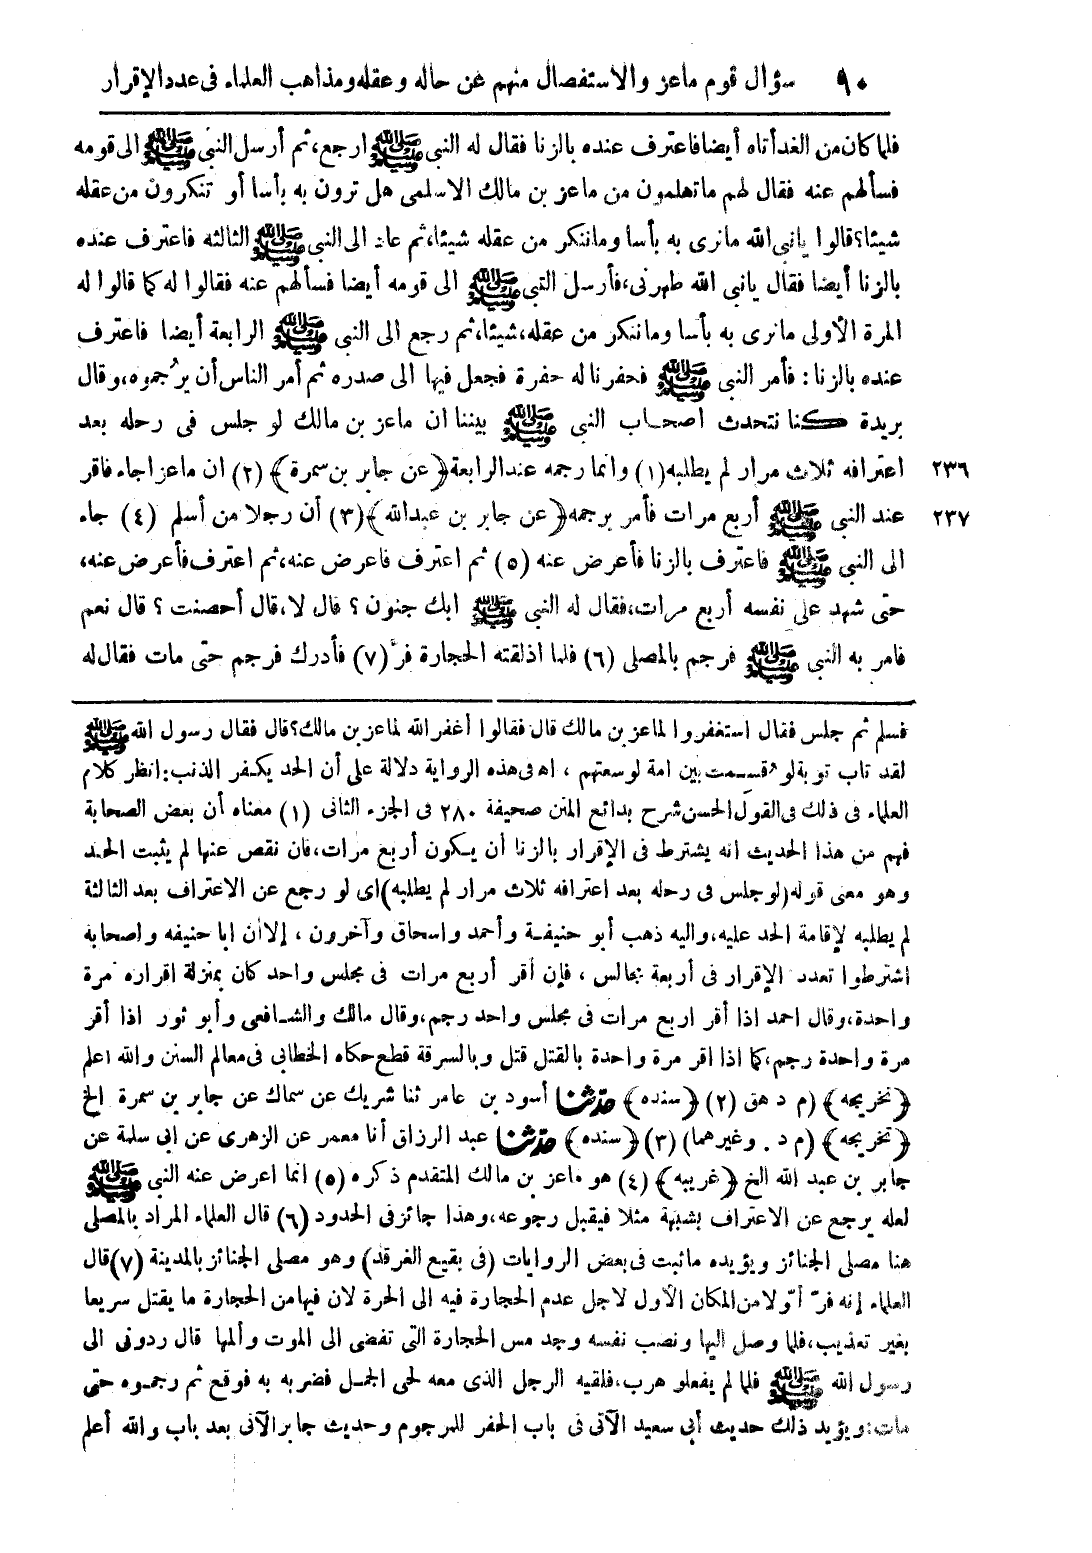 ٩٠ سؤال قوم ماعز والاستفصال منهم عن حاله وعقله ومذاهب العلماء فى عدد الإقرار
فلما كان من الغد أتاه أيضا فاعترف عنده بالزنا فقال له النبى ﷺ ارجع، ثم أرسل النبى ﷺ الى قومه
فسألهم عنه فقال لهم ما تعلمون من ماعز بن مالك الاسلمى هل ترون به بأسا أو تنكرون من عقله
شيئا؟ قالوا يا نبى الله ما نرى به بأسا وما ننكر من عقله شيئا، ثم عاد الى النبى ﷺ الثالثه فاعترف عنده
بالزنا أيضا فقال يا نبى الله طهرنى، فأرسل النبى ﷺ الى قومه أيضا فسألهم عنه فقالوا له كما قالوا له
المرة الأولى ما نرى به بأسا وما ننكر من عقله، شيئا، ثم رجع الى النبى ﷺ الرابعة أيضا فاعترف
عنده بالزنا: فأمر النبى ﷺ فحفرنا له حفرة فجعل فيها الى صدره ثم أمر الناس أن يرجموه، وقال
بريدة كنا نتحدث اصحاب النبى ﷺ بيننا ان ماعز بن مالك لو جلس فى رحله بعد
٢٣٦ اعترافه ثلاث مرار لم يطلبه (١) وانما رجمه عند الرابعة ﴿عن جابر بن سمرة﴾ (٢) ان ماعزا جاء فاقر
٢٣٧ عند النبى ﷺ أربع مرات فأمر برجمه ﴿عن جابر بن عبدالله﴾ (٣) أن رجلا من أسلم (٤) جاء
الى النبى ﷺ فاعترف بالزنا فأعرض عنه (٥) ثم اعترف فاعرض عنه، ثم اعترف فأعرض عنه،
حتى شهد على نفسه أربع مرات، فقال له النبى ﷺ ابك جنون؟ قال لا، قال أحصنت؟ قال نعم
فامر به النبى ﷺ فرجم بالمصلى (٦) فلما اذلقته الحجارة فرَّ (٧) فأدرك فرجم حتى مات فقال له
فسلم ثم جلس فقال استغفروا لماعز بن مالك قال فقالوا أغفر الله لماعز بن مالك؟ قال فقال رسول الله ﷺ
لقد تاب توبة لو قسمت بين امة لوسعتهم، اه فى هذه الرواية دلالة على أن الحد يكفر الذنب: انظر كلام
العلماء فى ذلك فى القول الحسن شرح بدائع المنن صحيفة ٢٨٠ فى الجزء الثانى (١) معناه أن بعض الصحابة
فهم من هذا الحديث انه يشترط فى الإقرار بالزنا أن يكون أربع مرات، فان نقص عنها لم يثبت الحد
وهو معنى قوله (لو جلس فى رحله بعد اعترافه ثلاث مرار لم يطلبه) اى لو رجع عن الاعتراف بعد الثالثة
لم يطلبه لإقامة الحد عليه، واليه ذهب أبو حنيفة وأحمد واسحاق وآخرون، إلا أن ابا حنيفه واصحابه
اشترطوا تعدد الإقرار فى أربعة مجالس، فإن أقر أربع مرات فى مجلس واحد كان بمنزلة اقراره مرة
واحدة، وقال احمد اذا أقر اربع مرات فى مجلس واحد رجم، وقال مالك والشافعى وأبو ثور اذا أقر
مرة واحدة رجم، كما اذا اقر مرة واحدة بالقتل قتل وبالسرقة قطع حكاه الخطابى فى معالم السنن والله اعلم
﴿تخريجه﴾ (م د هق) (٢) ﴿سنده﴾ حدّثنا أسود بن عامر ثنا شريك عن سماك عن جابر بن سمرة الخ
﴿تخريجه﴾ (م د. وغيرهما) (٣) ﴿سنده﴾ حدّثنا عبد الرزاق أنا معمر عن الزهرى عن ابى سلمة عن
جابر بن عبد الله الخ ﴿غريبه﴾ (٤) هو ماعز بن مالك المتقدم ذكره (٥) انما اعرض عنه النبى ﷺ
لعله يرجع عن الاعتراف بشبهة مثلا فيقبل رجوعه، وهذا جائز فى الحدود (٦) قال العلماء المراد بالمصلى
هنا مصلى الجنائز ويؤيده ما ثبت فى بعض الروايات (فى بقيع الغرقد) وهو مصلى الجنائز بالمدينة (٧) قال
العلماء إنه فرّ أوّلا من المكان الأول لاجل عدم الحجارة فيه الى الحرة لان فيها من الحجارة ما يقتل سريعا
بغير تعذيب، فلما وصل اليها ونصب نفسه وجد مس الحجارة التى تفضى الى الموت وألمها قال ردونى الى
رسول الله ﷺ فلما لم يفعلو هرب، فلقيه الرجل الذى معه لحى الجمل فضربه به فوقع ثم رجموه حتى
مات: ويؤيد ذلك حديث أبى سعيد الآتى فى باب الحفر للمرجوم وحديث جابر الآتى بعد باب والله أعلم